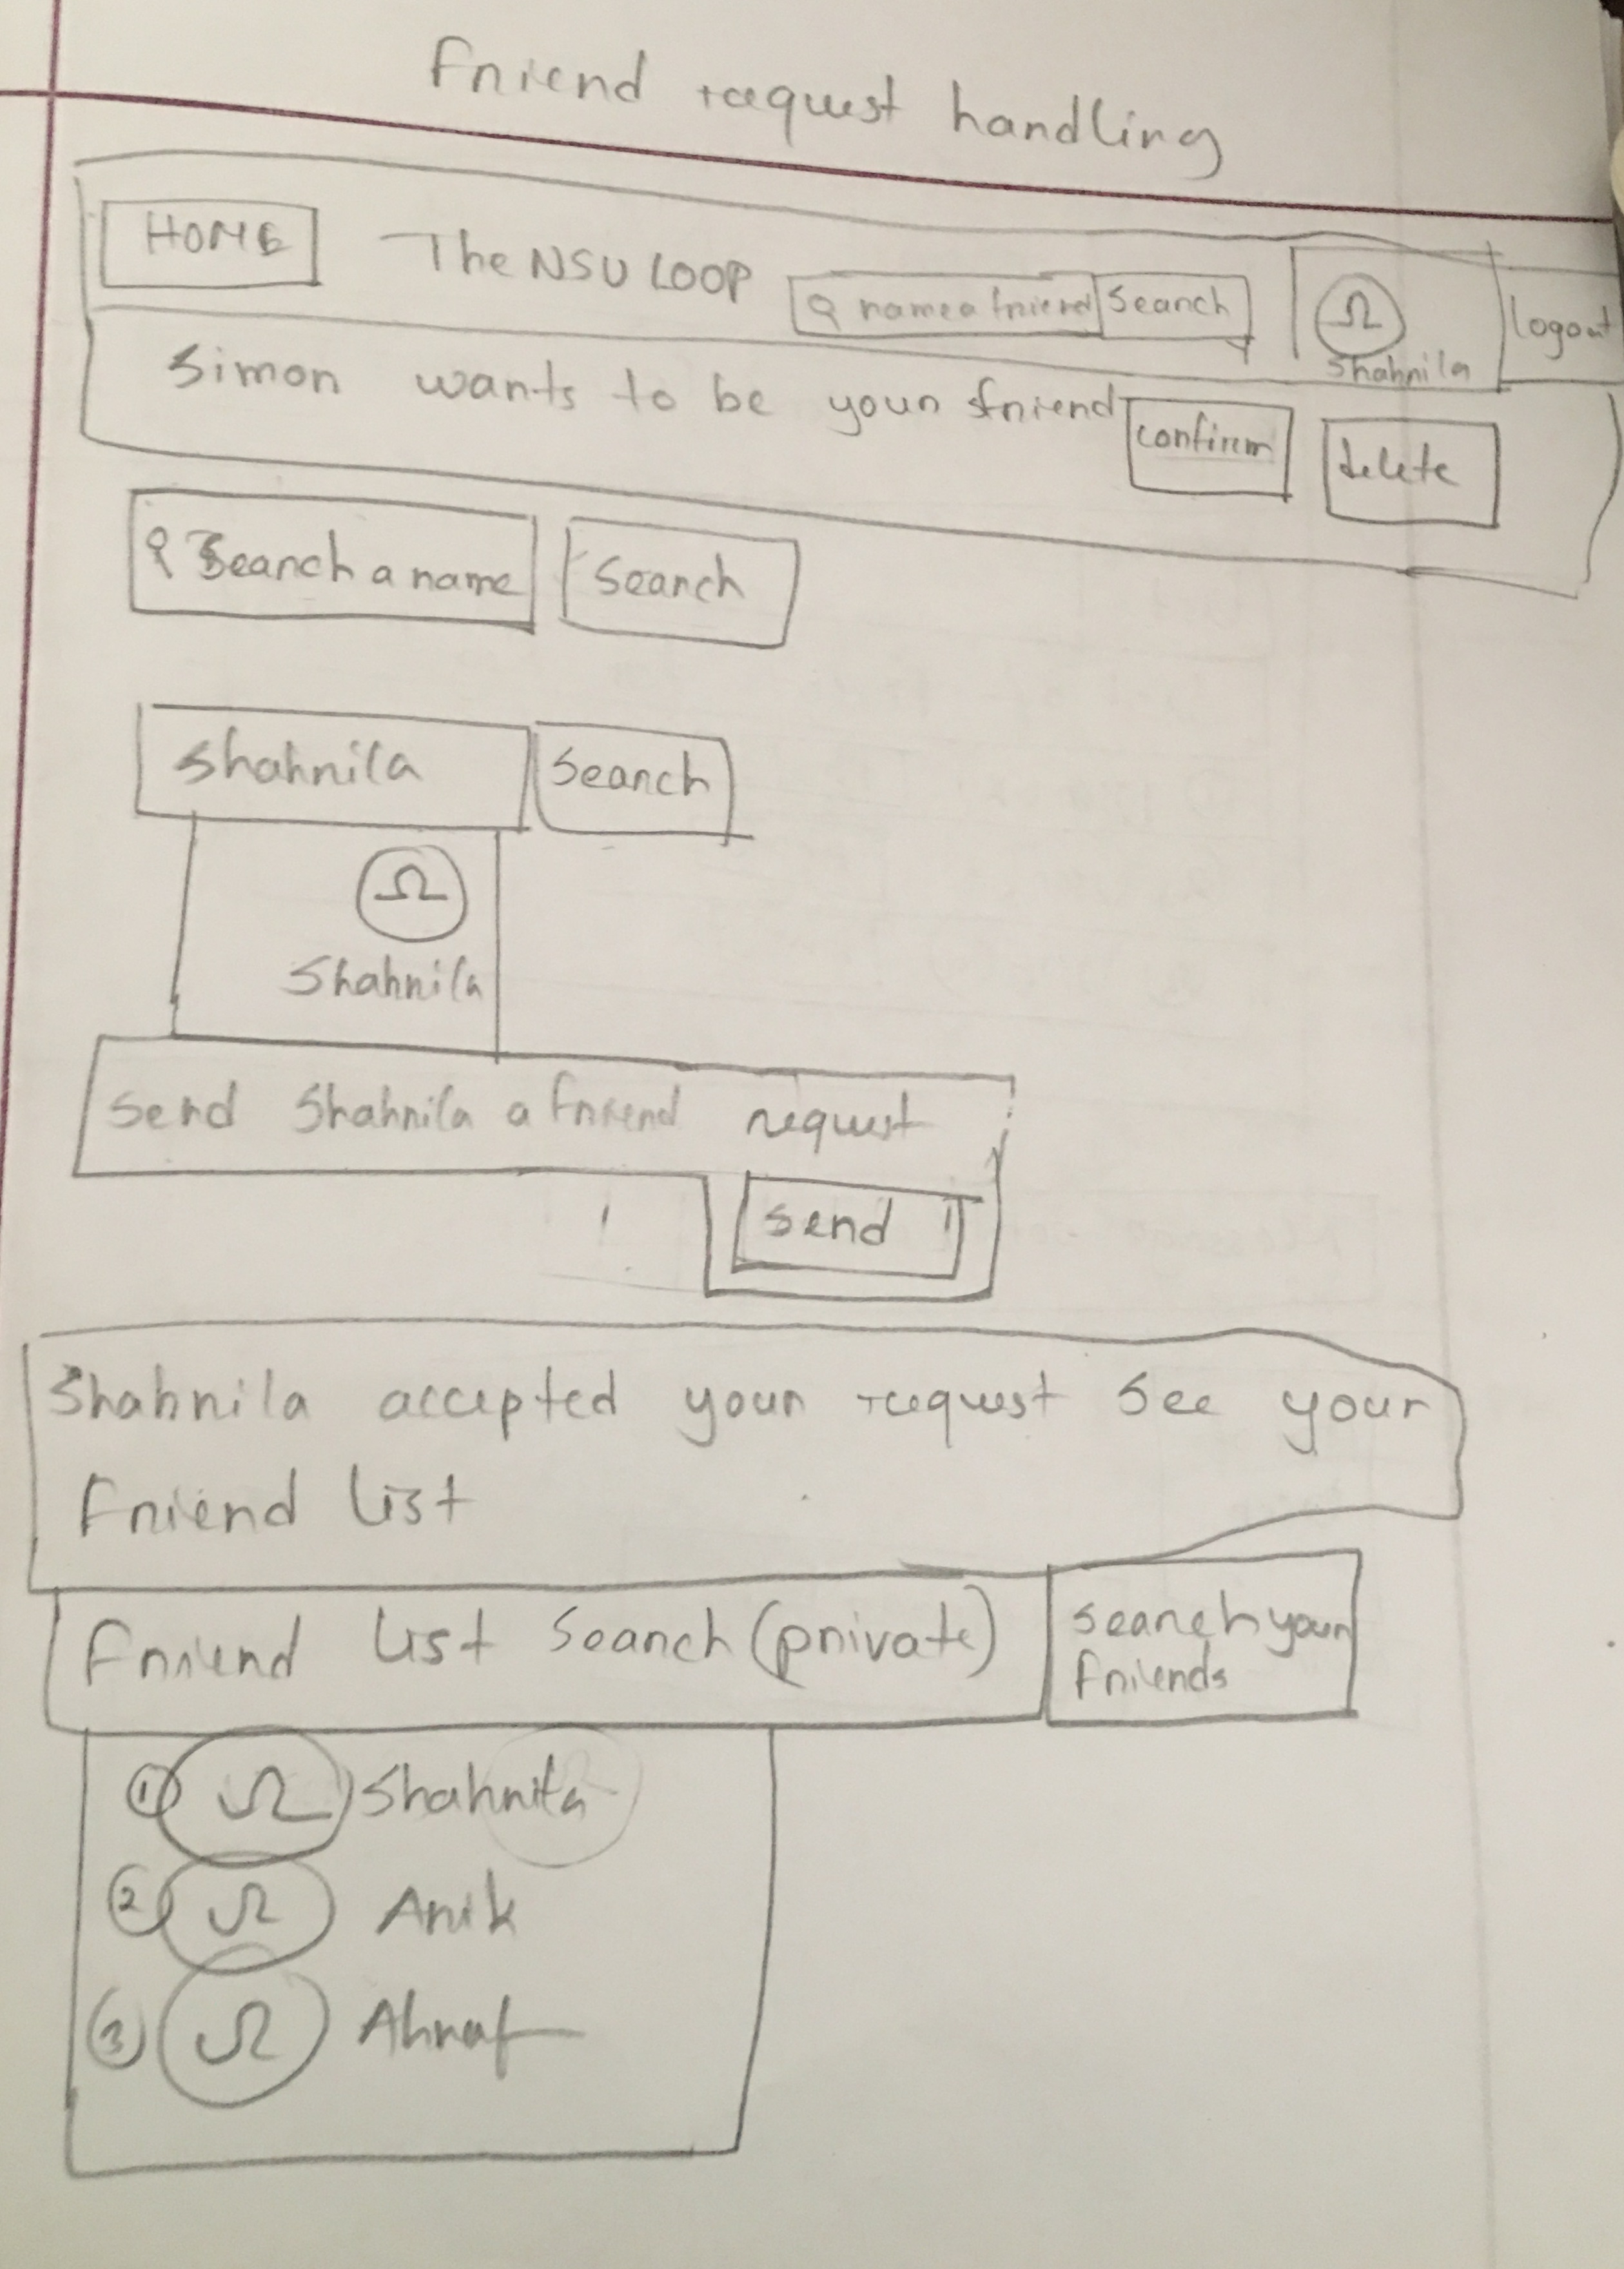 Friend request handling
HOME The NSU LOOP name a friend Search Shahnila logout
Simon wants to be your friend confirm delete
Search a name Search
Shahnila Search
Shahnila
Send Shahnila a friend request
Send
Shahnila accepted your request See your
Friend list
Friend list Search (private) Search your
friends
① Shahnila
② Anik
③ Ahnaf